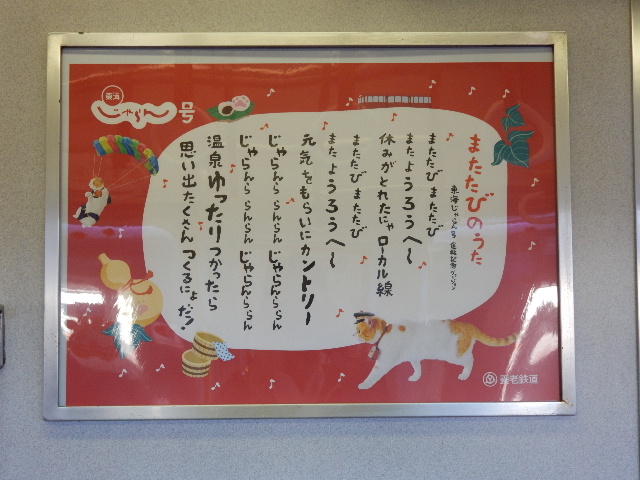 東海
じゃらん号
またたびのうた
東海じゃらん号
またたび またたび
またようろうへ〜
休みがとれたにゃローカル線
またたび またたび
またようろうへ〜
元気をもらいにカントリー
じゃらんらんらん じゃらんららん
じゃらんらんらん じゃらんららん
温泉ゆったりつかったら
思い出たくさんつくるにょだ!
養老鉄道